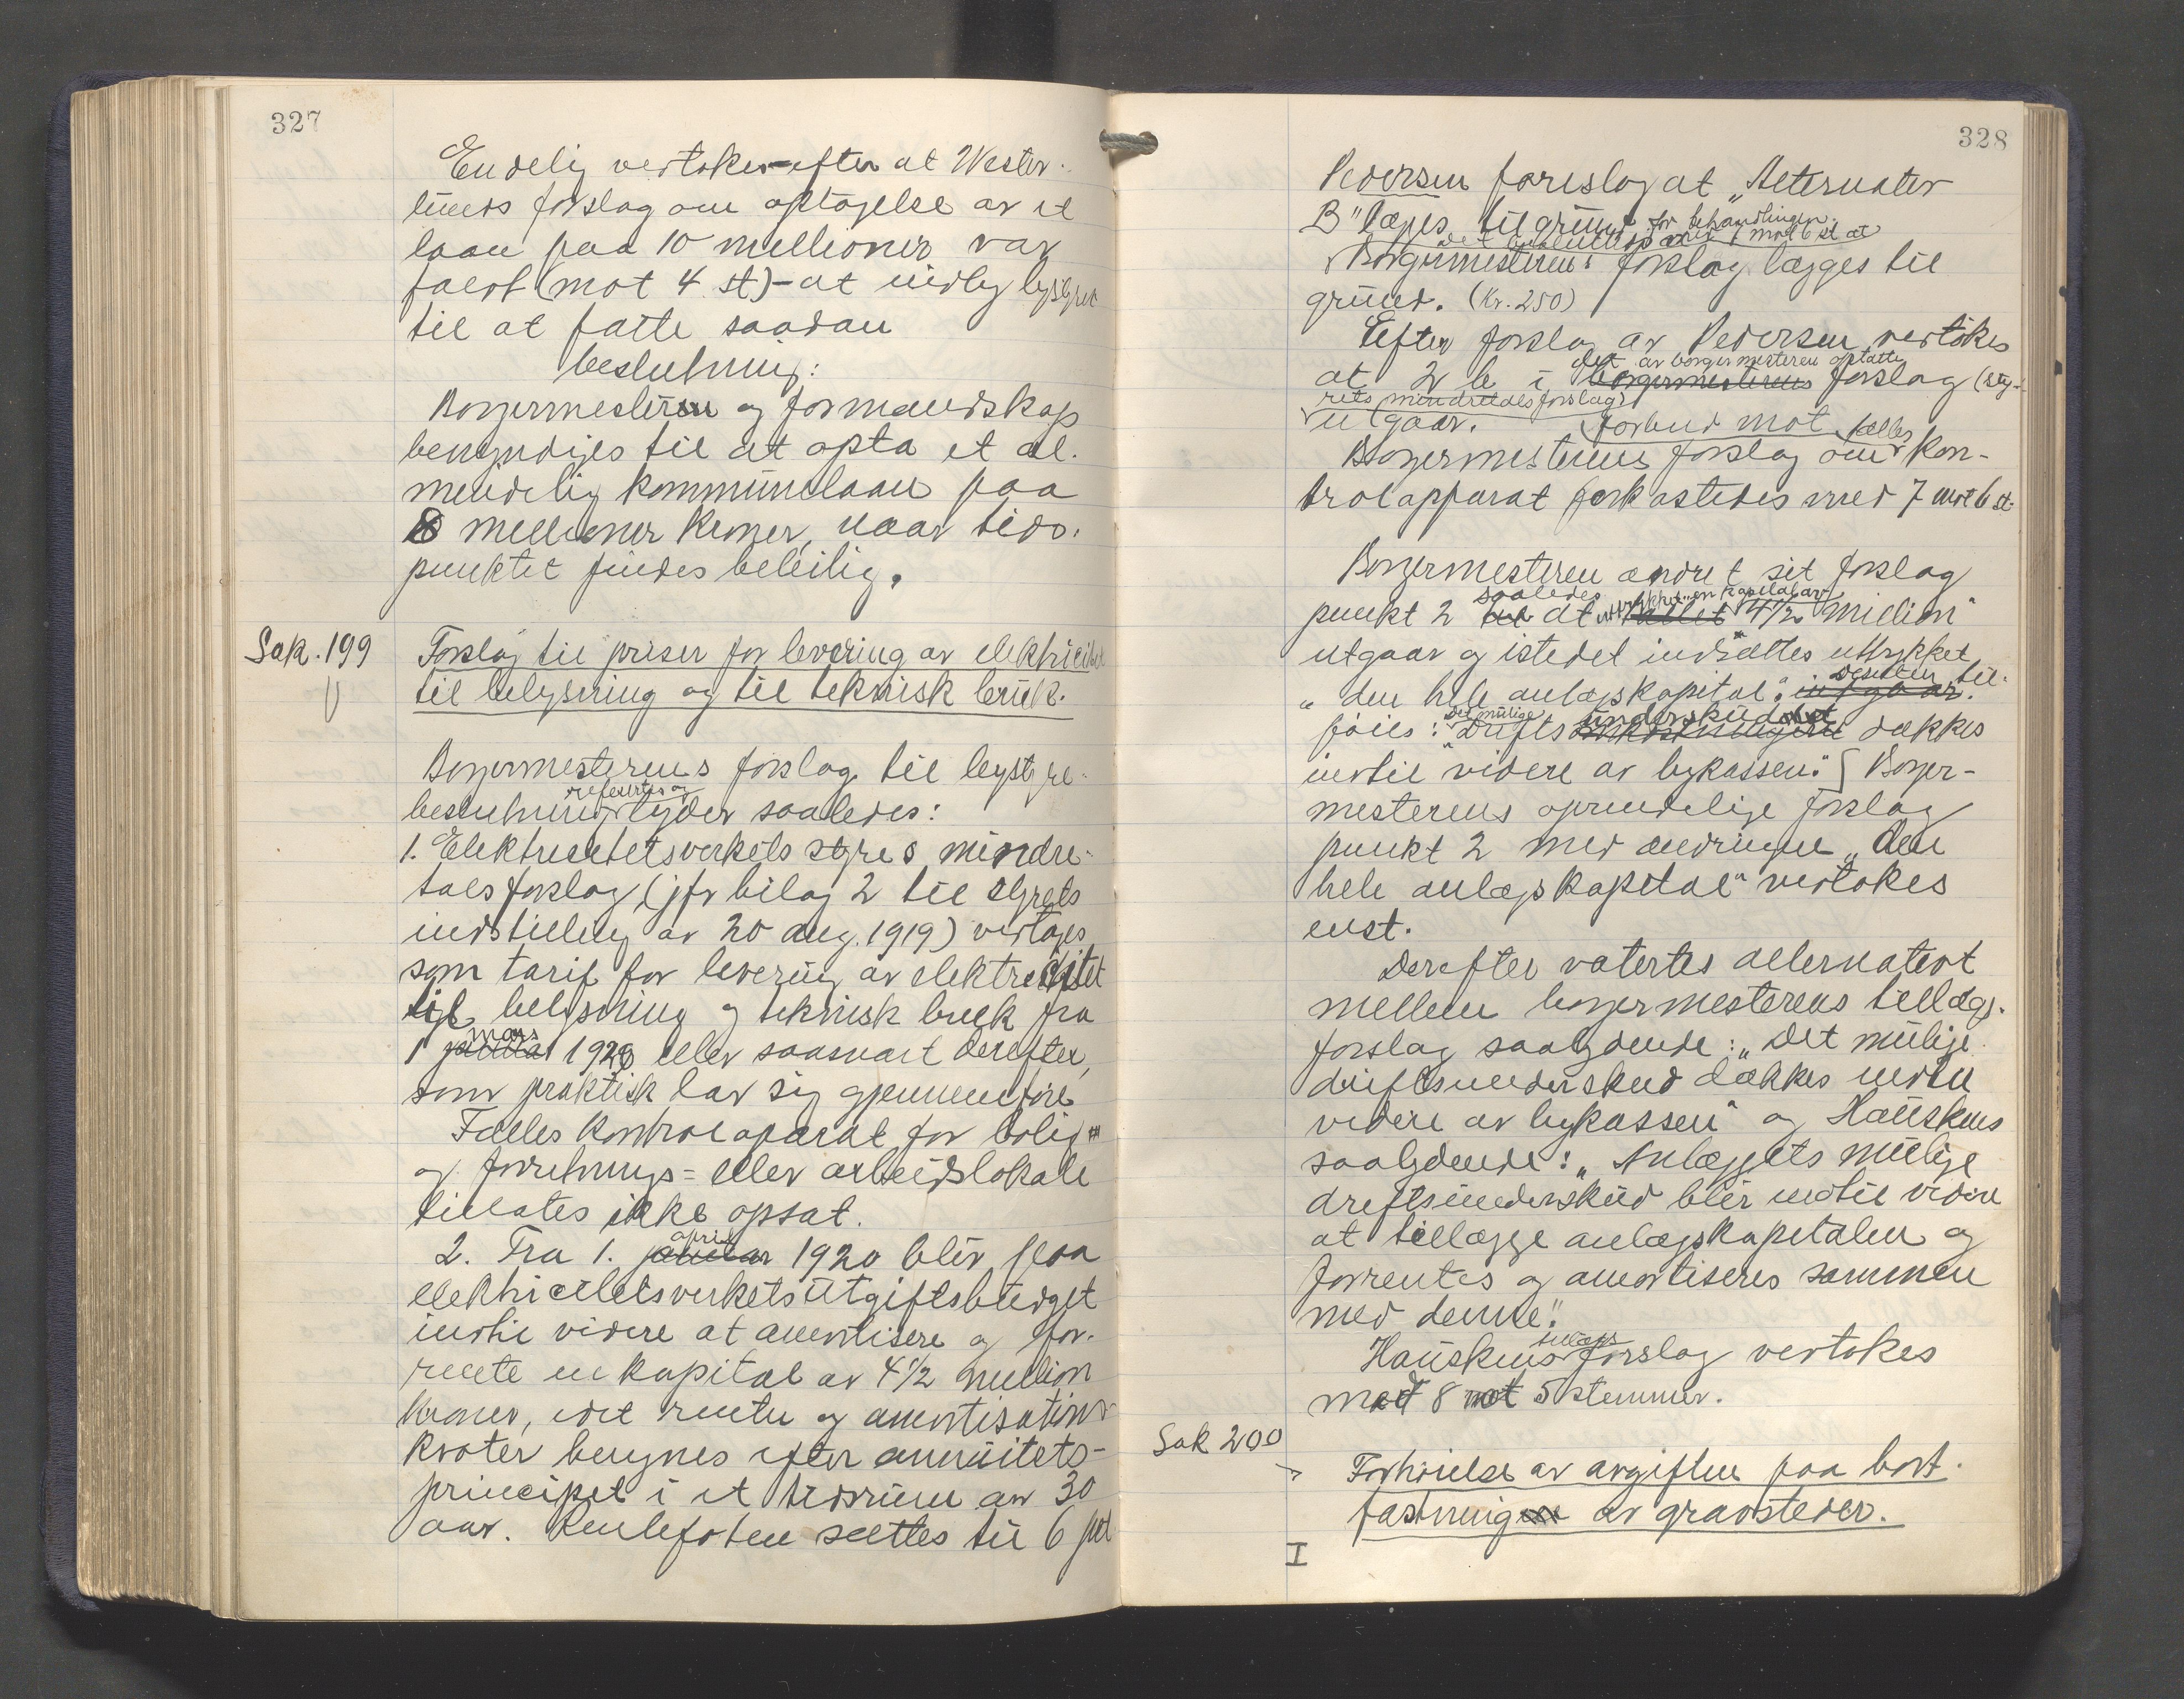 327
Endelig vertokes - efter at Wester-
lunds forslag om optagelse av et
laan paa 10 millioner var
faldt (mot 4 st) - at indby bystyret
til at fatte saadan
beslutning:
Borgermesteren og formandskap
bemyndiges til at opta et al-
mindelig kommunelaan paa
8 millioner kroner, naar tids-
punktet findes beleilig.
Sak. 199
Forslag til priser for levering av elektricitet
til belysning og til teknisk bruk.
Borgermesterens forslag til bystyre-
refertes og
beslutning lyder saaledes:
1. Elektricitetsverkets styres mindre-
talsforslag (jfr bilag 2 til styrets
indstilling av 20 aug. 1919) vedtages
som tarif for levering av elektricitet
til belysning og teknisk bruk fra
mars
1 januar 1920 eller saasnart derefter,
som praktisk lar sig gjennemføre
Fælles kontrolaparat for bolig=
og forretnings= eller arbeidslokale
tillates ikke opsat.
april
2. Fra 1. januar 1920 blir paa
elektricitetsverkets utgiftsbudget
indtil videre at amortisere og for-
rente en kapital av 4 1/2 million
kroner, idet renter og amortisations-
kvoter beregnes efter annuitets-
princippet i et tidsrum av 30
aar. Rentefoten sættes til 6 pct
328
Pedersen foreslog at "Alternativ
B" læges til grund for behandlingen.
Det besluttedes med 7 mot 6 st at
Borgermesterens forslag lægges til
grund. (Kr. 250)
Efter forslag av Pedersen vertokes
det av borgermesteren optatte
at 2 b i borgermesterens forslag (sty-
rets mindretalsforslag)
utgaar.
forbud mot fælles
Borgermesterens forslag om kon-
trolapparat forkastedes med 7 mot 6 st.
Borgermesteren ændret sit forslag
saaledes uttrykket "en kapital av
punkt 2 til at tallet 4 1/2 million"
utgaar og istedet indsættes uttrykket
"den hele anlægskapital". utgaar. Desuten til-
Det mulige underskudet
føies: "Drifts dækkes
indtil videre av bykassen." Borger-
mesterens oprindelige forslag
punkt 2 med ændringen "den
hele anlægskapital" vertokes
enst.
Derefter votertes alternativt
mellem borgermesterens tillægs-
forslag saalydende: "Det mulige
driftsunderskud dækkes indtil
videre av bykassen" og Hauskens
saalydende: "Anlæggets mulige
driftsunderskud blir indtil videre
at tillægge anlægskapitalen og
forrentes og amortiseres sammen
med denne."
tillægs
Hauskens forslag vertokes
med 8 mot 5 stemmer.
Sak 200
Forhøielse av avgiften paa bort-
fæstningen av gravsteder.
I